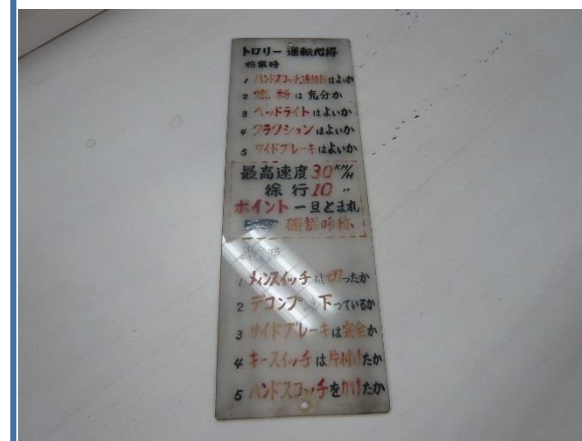 トロリー 運転心得
始業時
1 ハンドスコッチはよいか
2 燃料は充分か
3 ヘッドライトはよいか
4 クラクションはよいか
5 サイドブレーキはよいか
最高速度30KM/H
徐行10〃
ポイント一旦とまれ
確認呼称
1 メインスイッチは切ったか
2 デコンプ 下っているか
3 サイドブレーキは完全か
4 キースイッチは片付けたか
5 ハンドスコッチをかけたか